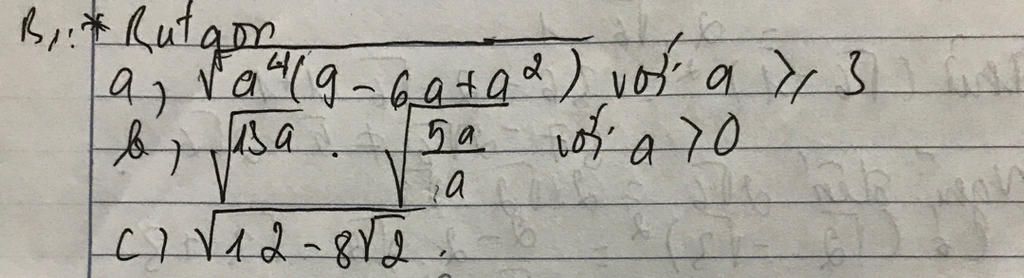 B1: * Rút gọn
a, √(a⁴(9 - 6a + a²)) với a ≥ 3
b, √(13a) . √(5a/a) với a > 0
c) √(12 - 8√2) .